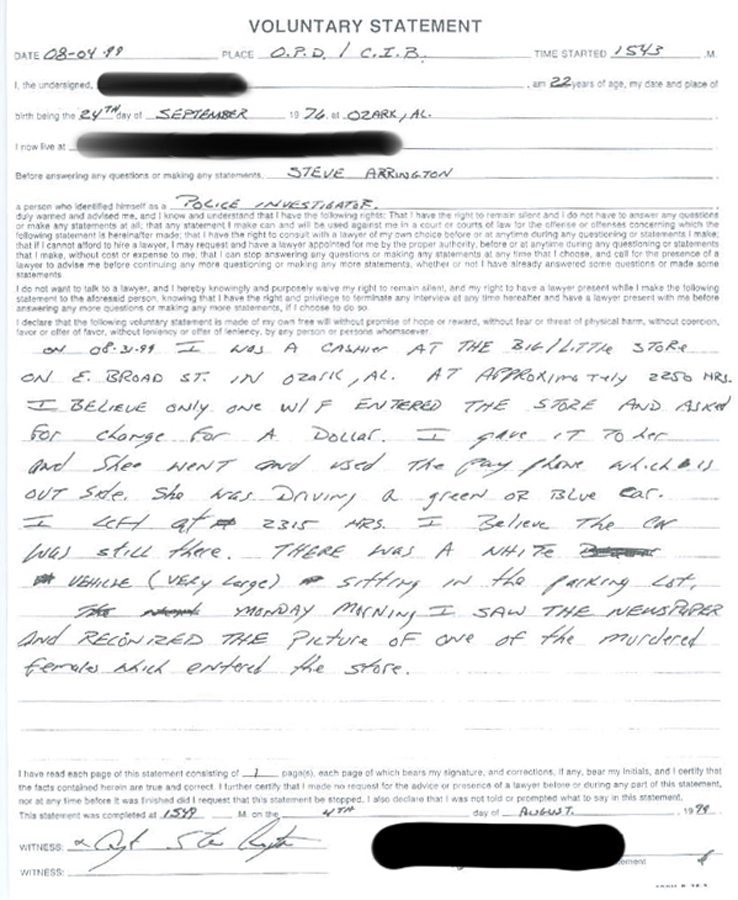 VOLUNTARY STATEMENT
DATE 08-04-99 PLACE O.P.D. / C.I.B. TIME STARTED 1543 .M.
I, the undersigned, , am 22 years of age, my date and place of
birth being the 24TH day of SEPTEMBER 1976, at OZARK, AL.
I now live at
Before answering any questions or making any statements, STEVE ARRINGTON
a person who identified himself as a POLICE INVESTIGATOR.
duly warned and advised me, and I know and understand that I have the following rights: That I have the right to remain silent and I do not have to answer any questions
or make any statements at all; that any statement I make can and will be used against me in a court or courts of law for the offense or offenses concerning which the
following statement is hereinafter made; that I have the right to consult with a lawyer of my own choice before or at anytime during any questioning or statements I make;
that if I cannot afford to hire a lawyer, I may request and have a lawyer appointed for me by the proper authority, before or at anytime during any questioning or statements
that I make, without cost or expense to me; that I can stop answering any questions or making any statements at any time that I choose, and call for the presence of a
lawyer to advise me before continuing any more questioning or making any more statements, whether or not I have already answered some questions or made some
statements
I do not want to talk to a lawyer, and I hereby knowingly and purposely waive my right to remain silent, and my right to have a lawyer present while I make the following
statement to the aforesaid person, knowing that I have the right and privilege to terminate any interview at any time hereafter and have a lawyer present with me before
answering any more questions or making any more statements, if I choose to do so.
I declare that the following voluntary statement is made of my own free will without promise of hope or reward, without fear or threat of physical harm, without coercion,
favor or offer of favor, without leniency or offer of leniency, by any person or persons whomsoever.
ON 08-31-99 I WAS A CASHIER AT THE BIG/LITTLE STORE
ON E. BROAD ST. IN OZARK, AL. AT APPROXIMATELY 2250 HRS.
I BELIEVE ONLY ONE W/F ENTERED THE STORE AND ASKED
FOR change for A DOLLAR. I gave IT TO her
and Shee WENT and used the pay phone which is
OUT Side. She WAS Driving a green OR BLUE Car.
I Left at 2315 HRS. I Believe The Car
WAS still there. THERE WAS A WHITE
VEHICLE (VERY Large) sitting in the parking Lot,
MONDAY MORNING I SAW THE NEWSPAPER
And RECONIZED THE Picture OF one of the murdered
females which entered the store.
I have read each page of this statement consisting of 1 page(s), each page of which bears my signature, and corrections, if any, bear my initials, and I certify that
the facts contained herein are true and correct. I further certify that I made no request for the advice or presence of a lawyer before or during any part of this statement,
nor at any time before it was finished did I request that this statement be stopped. I also declare that I was not told or prompted what to say in this statement.
This statement was completed at 1549 M. on the 4TH day of AUGUST. 1999
WITNESS:
WITNESS: